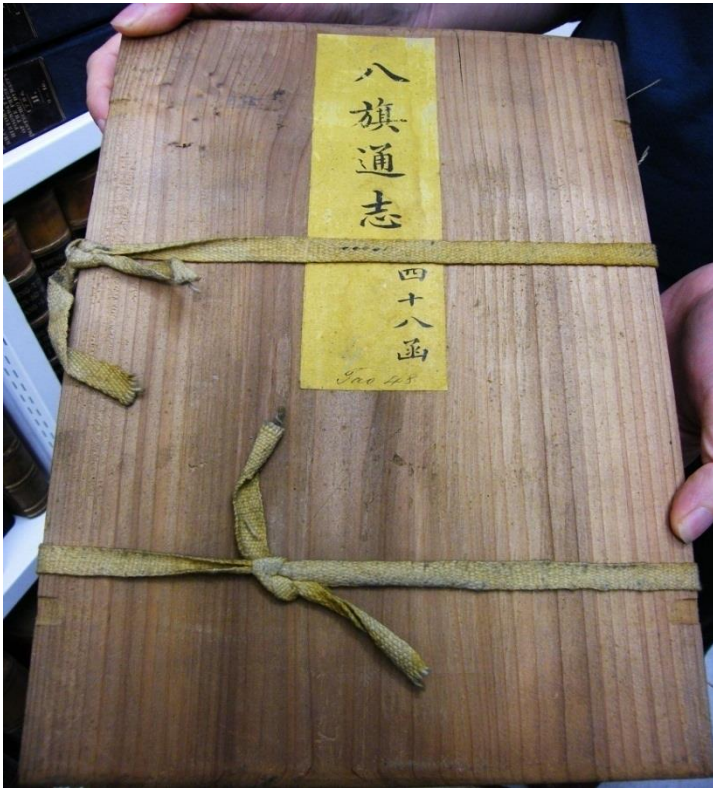 八旗通志
四十八函
Tao 48